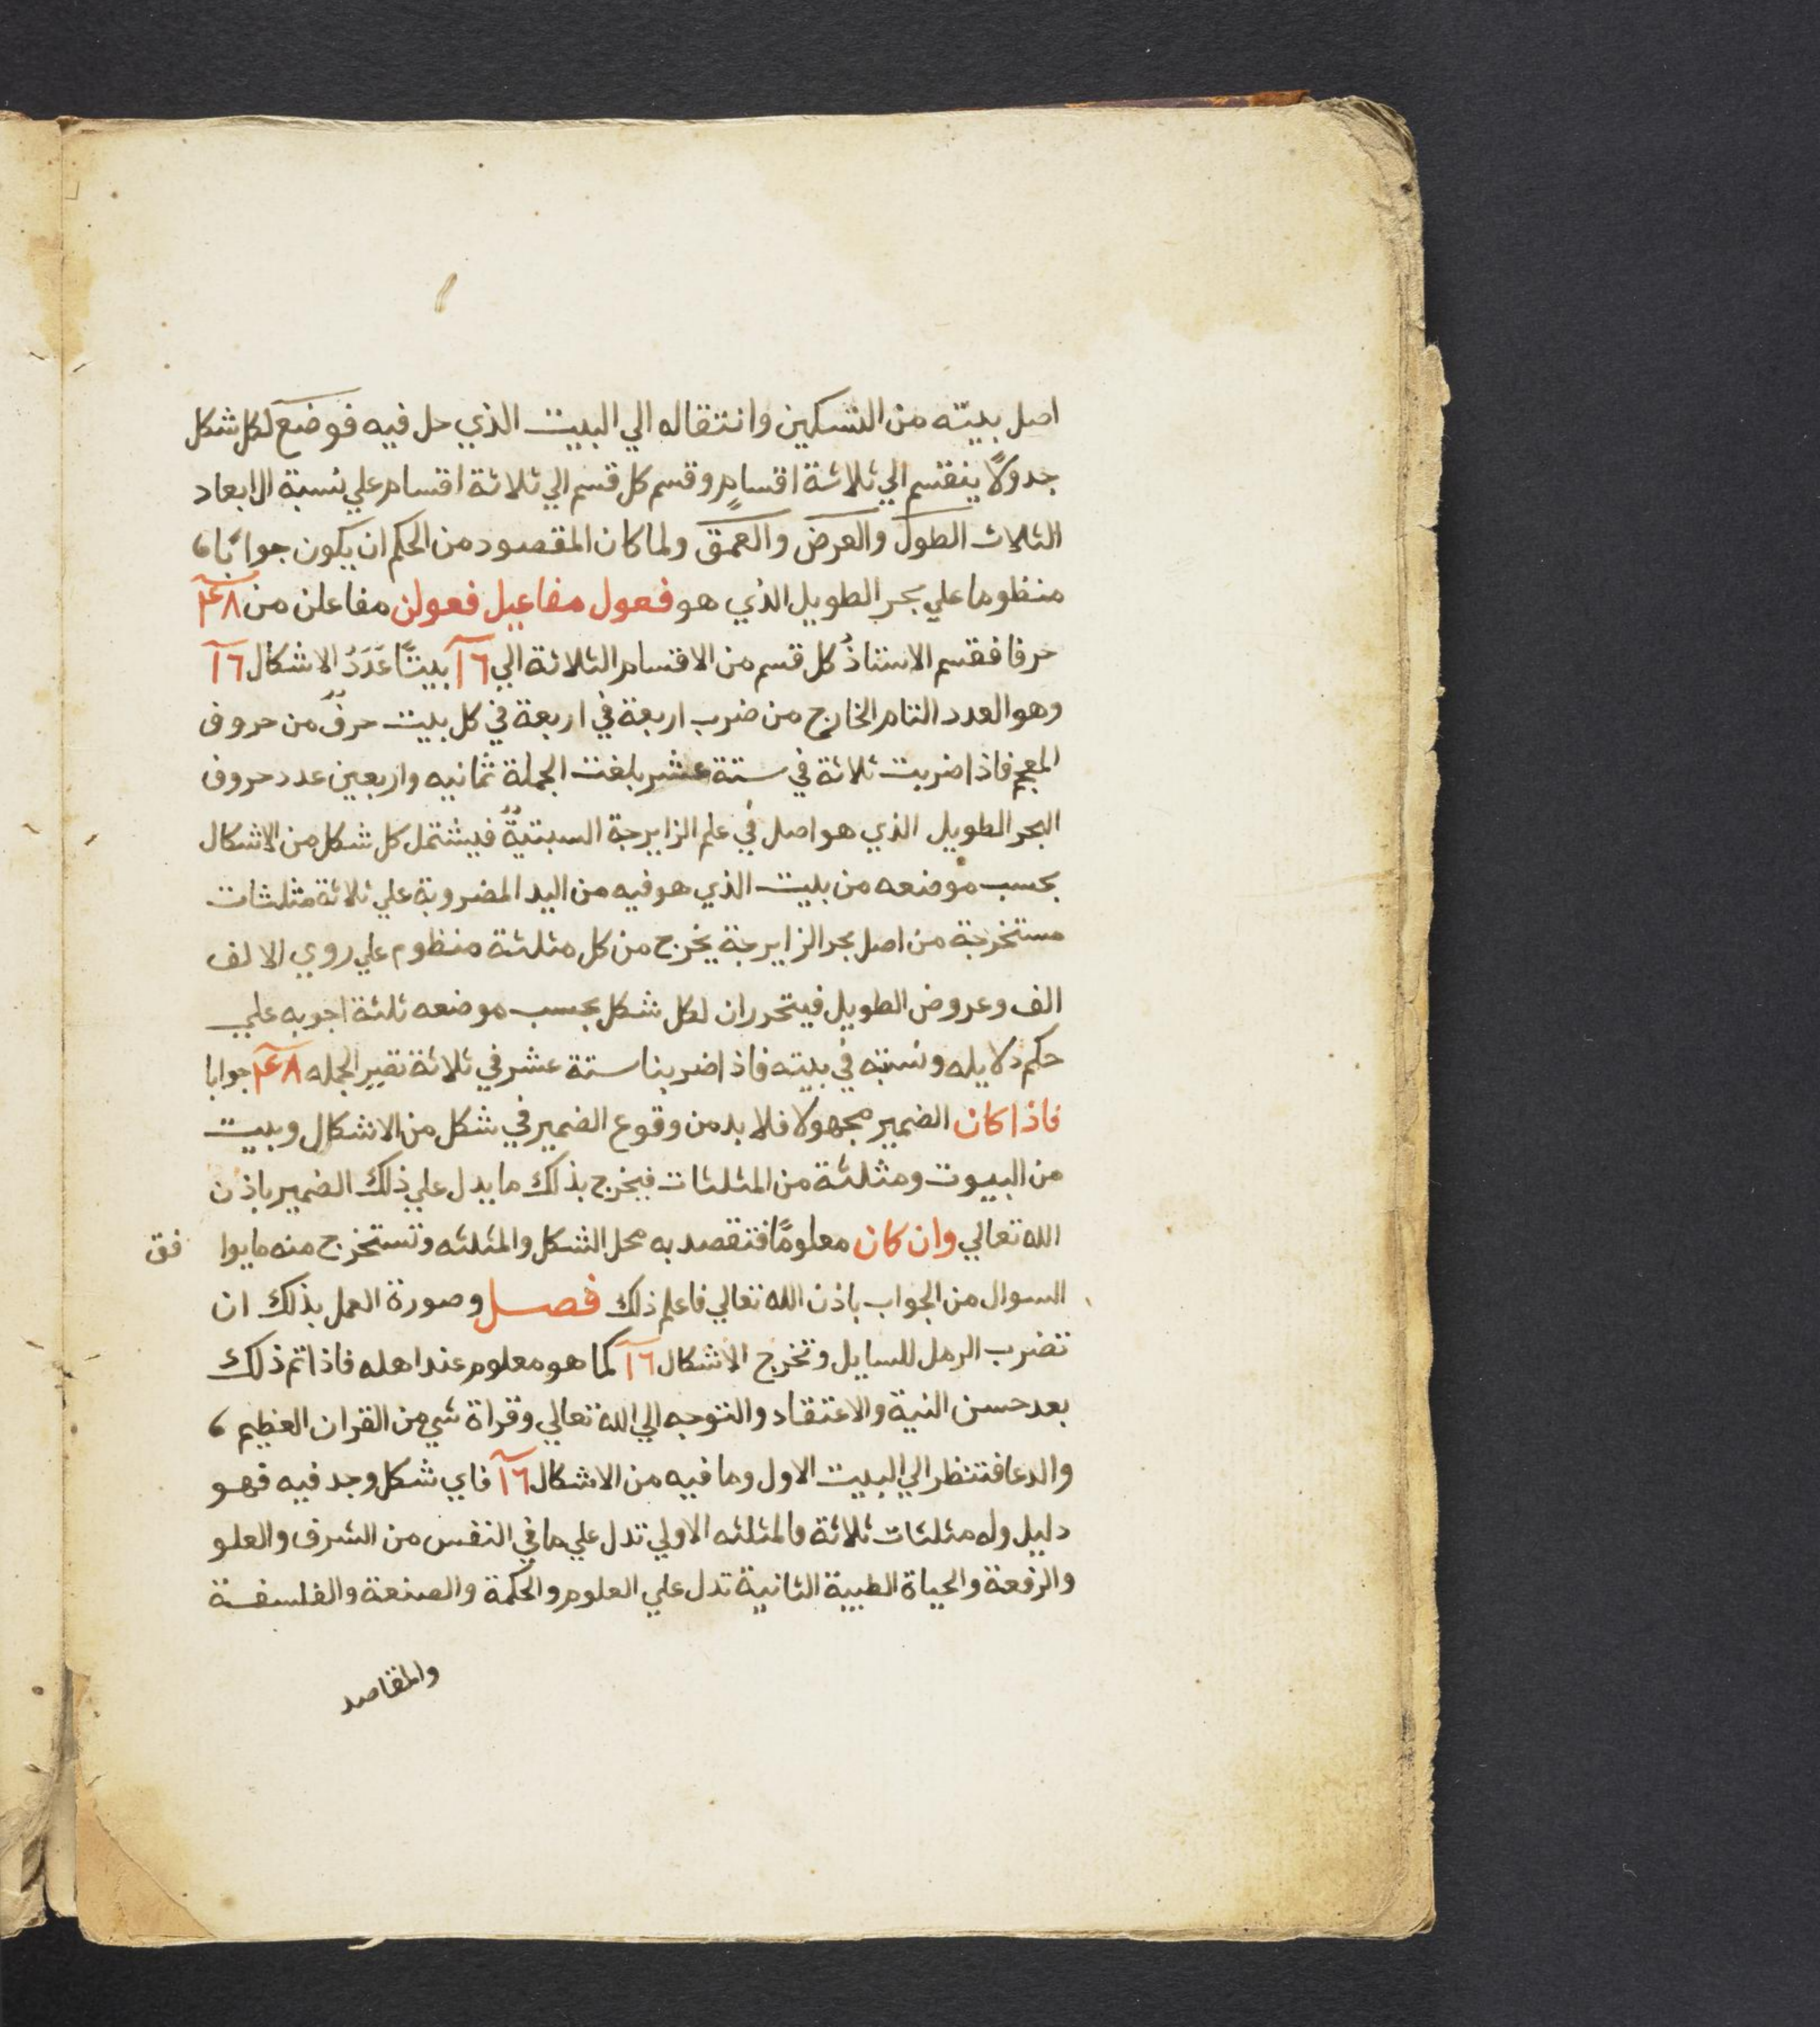 اصل بيته من التسكين وانتقاله الي البيت الذي حل فيه فوضع لكل شكل
جدولًا ينقسم الي ثلاثة اقسامٍ وقسم كل قسم الي ثلاثة اقسام علي نسبة الابعاد
الثلاث الطول والعرض والعمق ولما كان المقصود من الحكم ان يكون جوابًا
منظوما علي بحر الطويل الذي هو فعول مفاعيل فعولن مفاعلن من ۴۸
حرفا فقسم الاستاذُ كل قسم من الاقسام الثلاثة الي ١٦ بيتًا عَدَدُ الاشكال ١٦
وهو العدد التام الخارج من ضرب اربعة في اربعة في كل بيت حرفٌ من حروف
المعجم فاذا ضربت ثلاثة في ستة عشر بلغت الجملة ثمانيه واربعين عدد حروف
البحر الطويل الذي هو اصل في علم الزايرجة السبتيةٌ فيشتمل كل شكل من الاشكال
بحسب موضعه من بيت الذي هو فيه من اليد المضروبة علي ثلاثة مثلثات
مستخرجة من اصل بحر الزايرجة يخرج من كل مثلثة منظوم علي روي الالف
الف وعروض الطويل فيتحرر ان لكل شكل بحسب موضعه ثلثة اجوبه علي
حكم دلايله ونسبته في بيته فاذا ضربنا ستة عشر في ثلاثة تصير الجمله ۴۸ جوابا
فاذا كان الضمير مجهولا فلا بد من وقوع الضمير في شكل من الاشكال وبيت
من البيوت ومثلثة من المثلثات فيخرج بذلك ما يدل علي ذلك الضمير باذن
الله تعالي وان كان معلومًا فتقصد به محل الشكل والمثلثه وتستخرج منه ما يوا فق
السوال من الجواب باذن الله تعالي فاعلم ذلك فصل وصورة العمل بذلك ان
تضرب الرمل للسايل وتخرج الاشكال ١٦ كما هو معلوم عند اهله فاذا تم ذلك
بعد حسن النية والاعتقاد والتوجه الي الله تعالي وقراة شي من القران العظيم
والدعا فتنظر الي البيت الاول وما فيه من الاشكال ١٦ فاي شكل وجد فيه فهو
دليل وله مثلثات ثلاثة فالمثلثه الاولي تدل علي ما في النفس من الشرف والعلو
والرفعة والحياة الطيبة الثانية تدل علي العلوم والحكمة والصنعة والفلسفة
والمقاصد